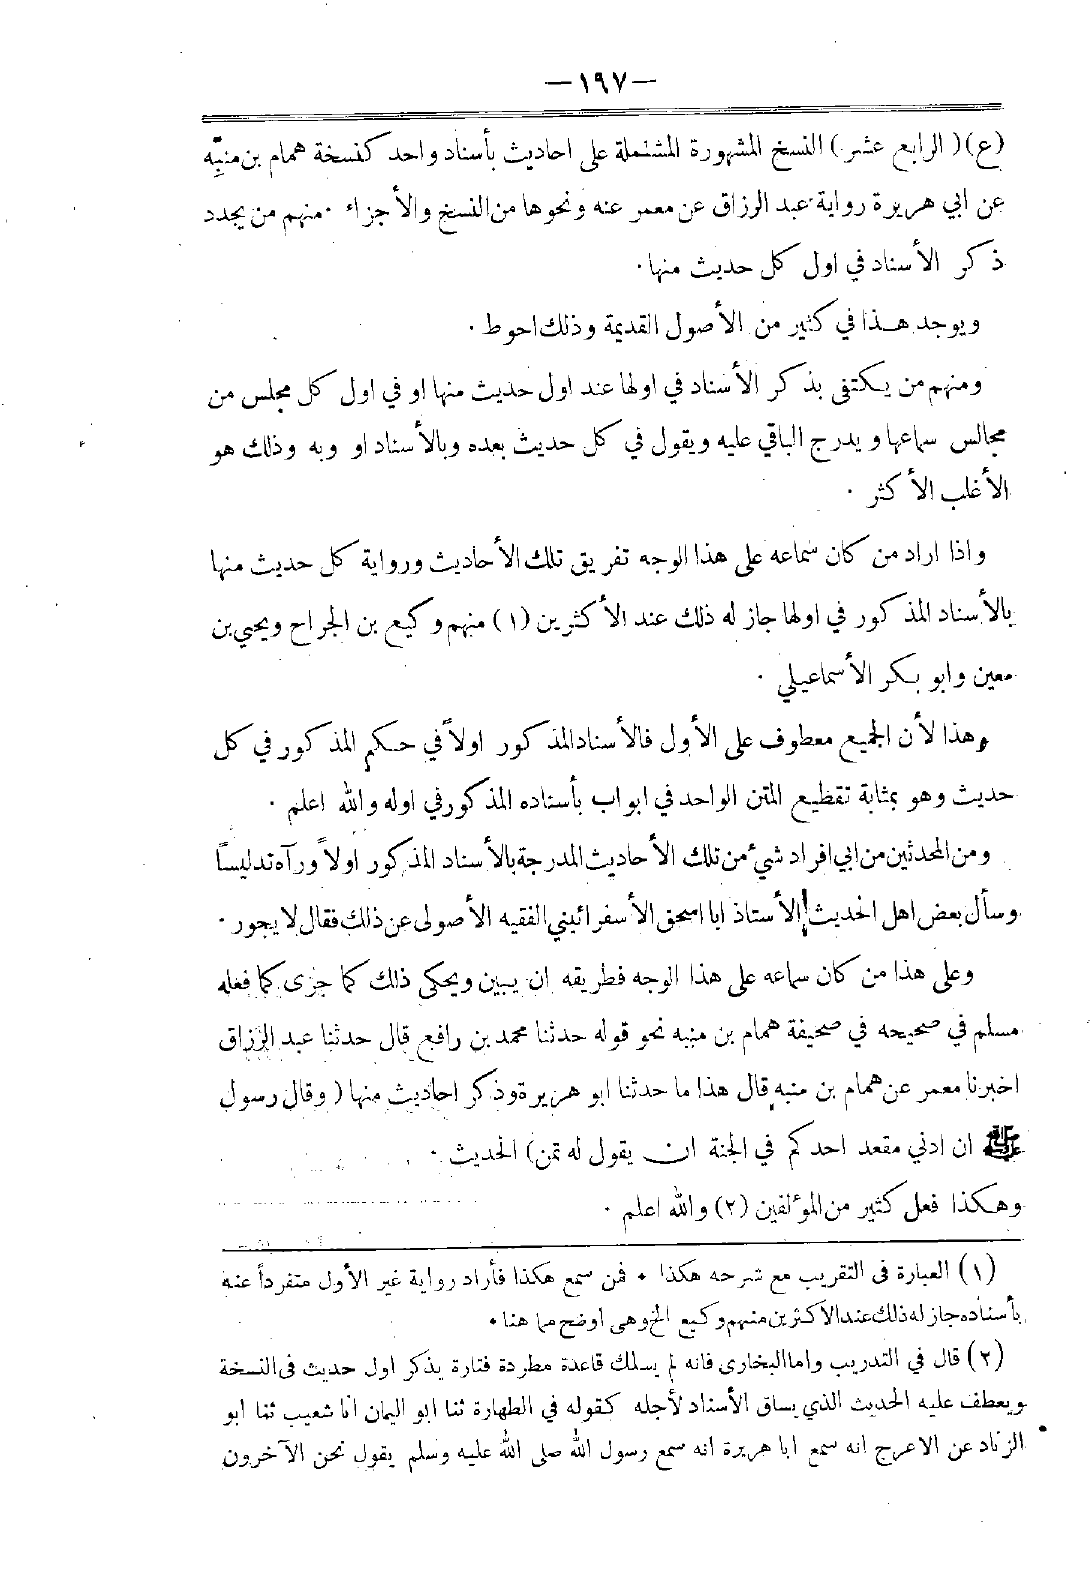 —١٩٧—
(ع)( الرابع عشر ) النسخ المشهورة المشتملة على احاديث بأسناد واحد كنسخة همام بن منبِّه
عن ابي هريرة رواية عبد الرزاق عن معمر عنه ونحوها من النسخ والأجزاء ٠ منهم من يجدد
ذكر الأسناد في اول كل حديث منها ٠
ويوجد هـذا في كثير من الأصول القديمة وذلك احوط ٠
ومنهم من يكتفى بذكر الأسناد في اولها عند اول حديث منها او في اول كل مجلس من
مجالس سماعها ويدرج الباقي عليه ويقول في كل حديث بعده وبالأسناد او وبه وذلك هو
الأغلب الأكثر ٠
واذا اراد من كان سماعه على هذا الوجه تفريق تلك الأحاديث ورواية كل حديث منها
بالأسناد المذكور في اولها جاز له ذلك عند الأكثرين (١) منهم وكيع بن الجراح ويحيي بن
معين وابو بكر الأسماعيلي ٠
وهذا لأن الجميع معطوف على الأول فالأسناد المذكور اولاً في حكم المذكور في كل
حديث وهو بمثابة تقطيع المتن الواحد في ابواب بأسناده المذكور في اوله والله اعلم ٠
ومن المحدثين من ابي افراد شيء من تلك الأحاديث المدرجة بالأسناد المذكور اولاً ورآه تدليساً
وسأل بعض اهل الحديث الأستاذ ابا اسحق الأسفرائيني الفقيه الأصولى عن ذلك فقال لا يجوز ٠
وعلى هذا من كان سماعه على هذا الوجه فطريقه ان يبين ويحكى ذلك كما جرى كما فعله
مسلم في صحيحه في صحيفة همام بن منبه نحو قوله حدثنا محمد بن رافع قال حدثنا عبد الرزاق
اخبرنا معمر عن همام بن منبه قال هذا ما حدثنا ابو هريرة وذكر احاديث منها ( وقال رسول
ﷺ ان ادني مقعد احدكم في الجنة ان يقول له تمن) الحديث ٠
وهـكذا فعل كثير من المؤلفين (٢) والله اعلم ٠
(١) العبارة فى التقريب مع شرحه هكذا ٠ فمن سمع هكذا فأراد رواية غير الأول متفرداً عنه
بأسناده جاز له ذلك عند الاكثرين منهم وكيع الخ وهى اوضح مما هنا ٠
(٢) قال في التدريب واما البخارى فانه لم يسلك قاعدة مطردة فتارة يذكر اول حديث فى النسخة
ويعطف عليه الحديث الذي يساق الأسناد لأجله كقوله في الطهارة ثنا ابو اليمان انا شعيب ثنا ابو
الزناد عن الاعرج انه سمع ابا هريرة انه سمع رسول الله صلى الله عليه وسلم يقول نحن الآخرون